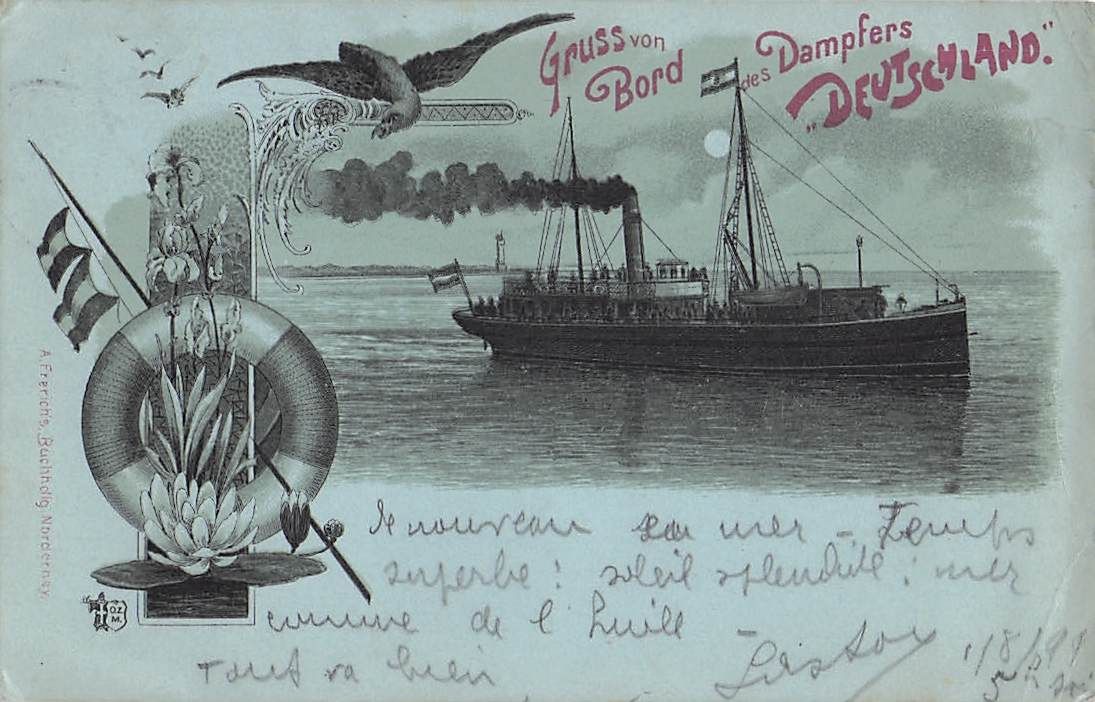 Gruss von
Bord des Dampfers
„DEUTSCHLAND."
A. Frerichs, Buchhdlg. Norderney.
O.Z.
M.
De nouveau sur mer – Temps
superbe! soleil splendide; mer
comme de l'huile –
Tout va bien
1/8/99
5 h